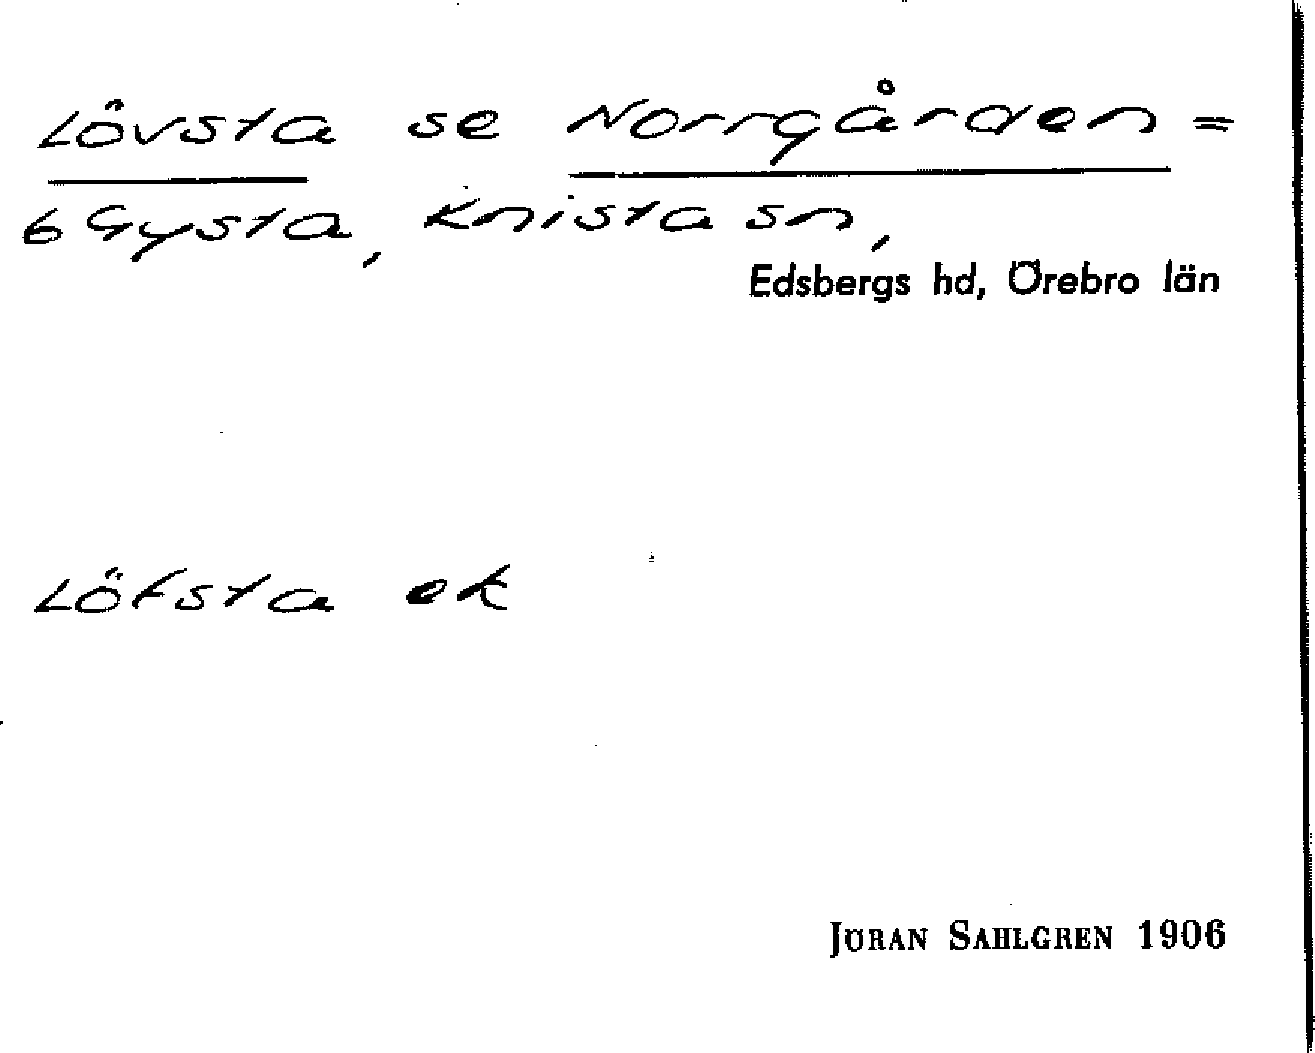 Lövsta se Norrgården =
6 Gysta, Knista sn,
Edsbergs hd, Örebro län
Löfsta ek
JÖRAN SAHLGREN 1906